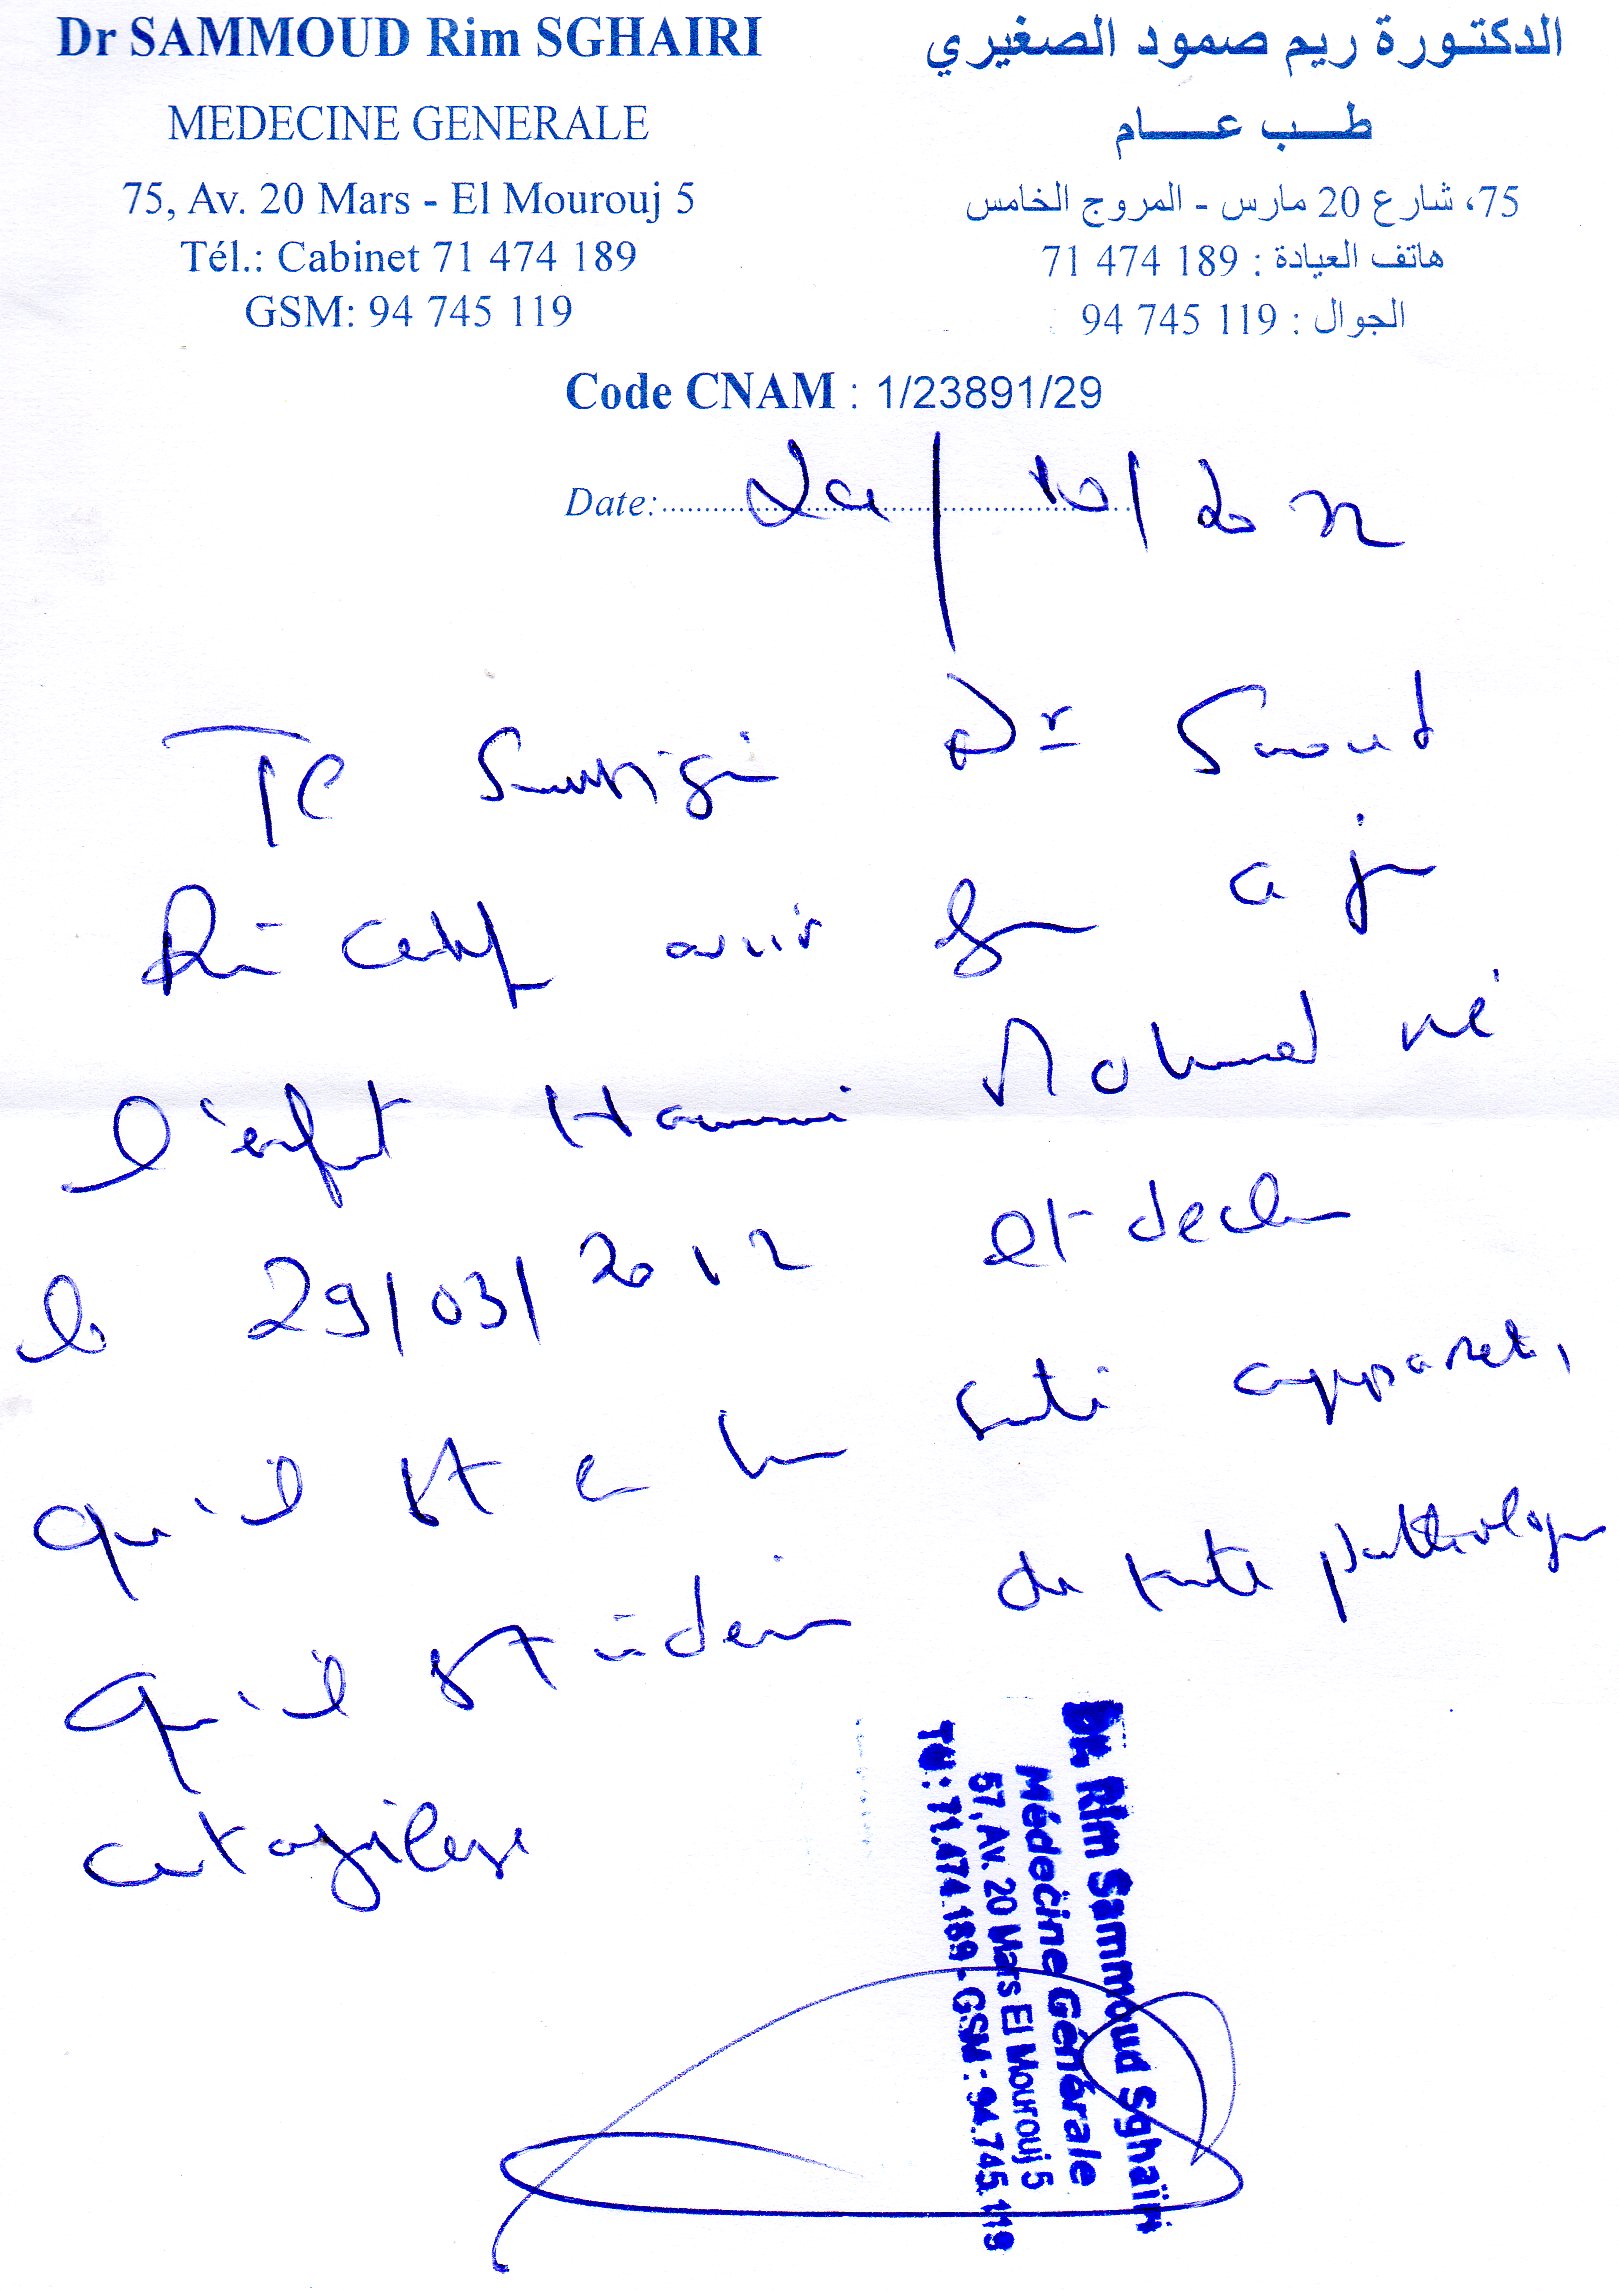 Dr SAMMOUD Rim SGHAIRI
MEDECINE GENERALE
75, Av. 20 Mars - El Mourouj 5
Tél.: Cabinet 71 474 189
GSM: 94 745 119
الدكتورة ريم صمود الصغيري
طب عام
75، شارع 20 مارس - المروج الخامس
هاتف العيادة : 189 474 71
الجوال : 119 745 94
Code CNAM : 1/23891/29
Date: /10/20
Je Dr
Rim avoir ce jour
l'enfant Hammi né
le 29/03/2012 et declare
qu'il est en santé apparente,
qu'il est indemne de toute pathologie
contagieuse
Dr. Rim Sammoud Sghaïri
Médecine Générale
57, Av. 20 Mars El Mourouj 5
Tél : 71.474.189 - GSM : 94.745.119